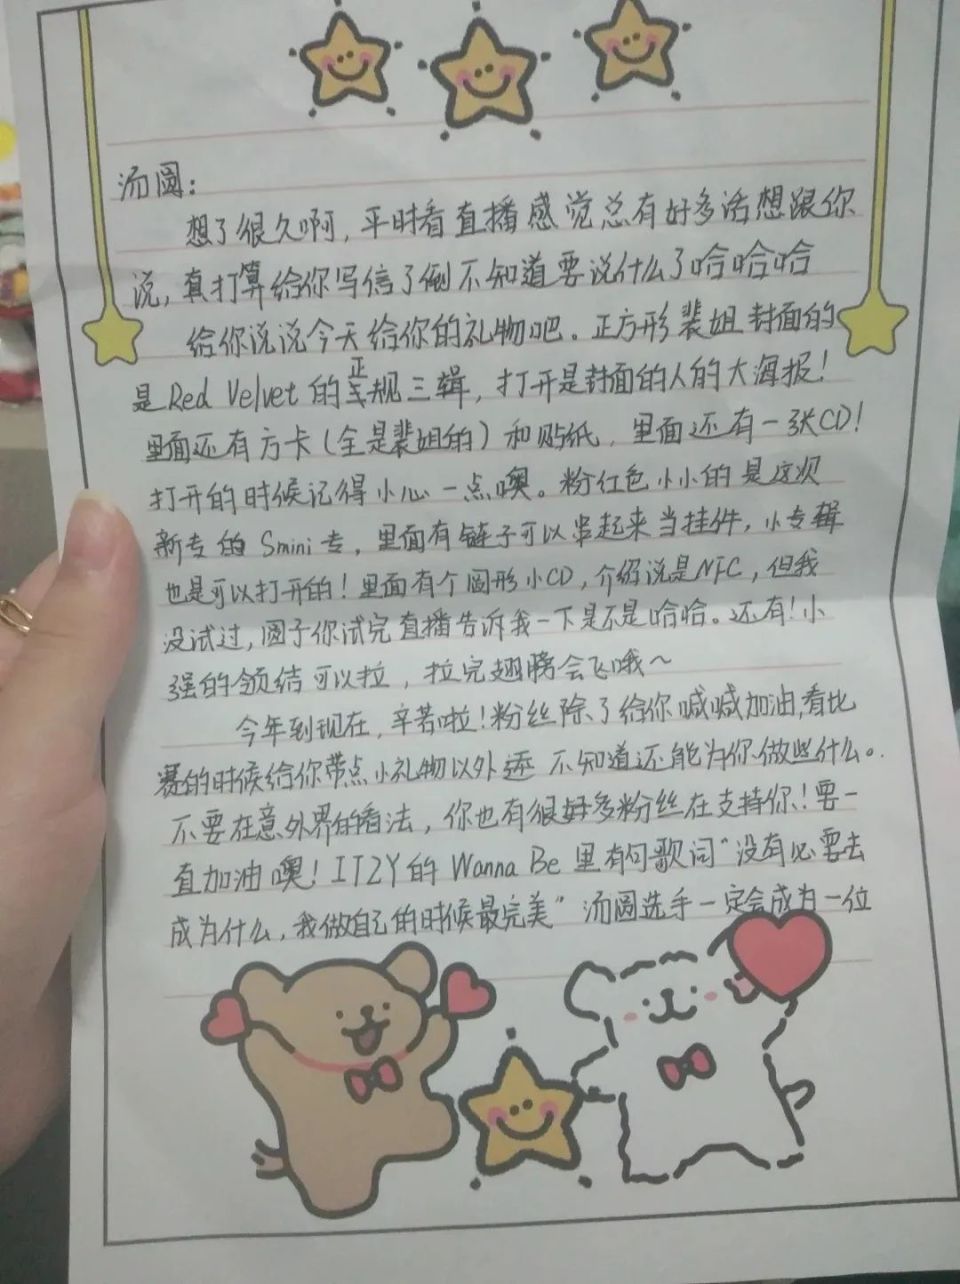 汤圆：
想了很久啊，平时看直播感觉总有好多话想跟你
说，真打算给你写信了倒不知道要说什么了哈哈哈
给你说说今天给你的礼物吧。正方形裴姐封面的
是Red Velvet的正规三辑，打开是封面的人的大海报！
里面还有方卡（全是裴姐的）和贴纸，里面还有一张CD！
打开的时候记得小心一点噢。粉红色小小的是这次
新专的Smini专，里面有链子可以串起来当挂件，小专辑
也是可以打开的！里面有个圆形小CD，介绍说是NFC，但我
没试过，圆子你试完直播告诉我一下是不是哈哈。还有！小
强的领结可以拉，拉完翅膀会飞哦～
今年到现在，辛苦啦！粉丝除了给你喊喊加油，看比
赛的时候给你带点小礼物以外 不知道还能为你做些什么。
不要在意外界的看法，你也有很好多粉丝在支持你！要一
直加油噢！ITZY的Wanna Be里有句歌词“没有必要去
成为什么，我做自己的时候最完美”汤圆选手一定会成为一位